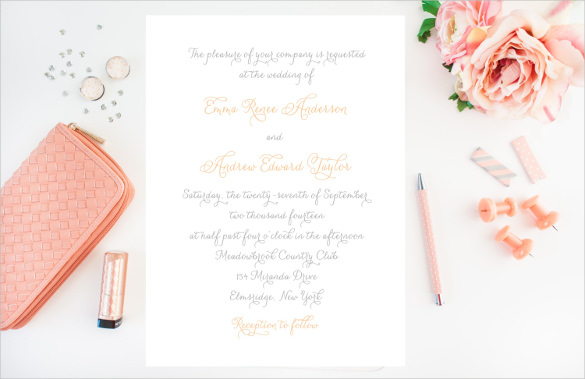 The pleasure of your company is requested
at the wedding of
Emma Renee Anderson
and
Andrew Edward Taylor
Saturday, the twenty-seventh of September
two thousand fourteen
at half past four o'clock in the afternoon
Meadowbrook Country Club
154 Miranda Drive
Elmsridge, New York
Reception to follow